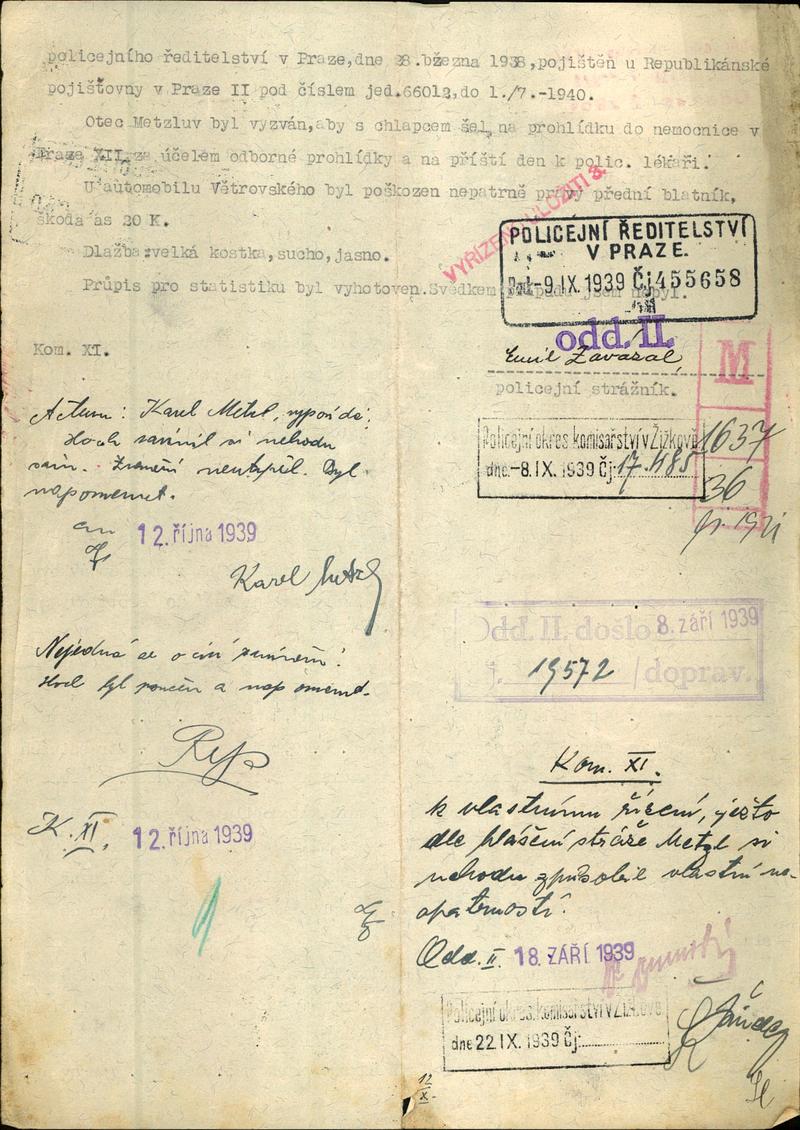 policejního ředitelství v Praze,dne 28.března 1938,pojištěn u Republikánské
pojišťovny v Praze II pod číslem jed.66012,do 1./7.-1940.
Otec Metzluv byl vyzván,aby s chlapcem šel na prohlídku do nemocnice v
Praze XII,za účelem odborné prohlídky a na příští den k polic. lékaři.
U automobilu Větrovského byl poškozen nepatrně pravý přední blatník,
škoda as 20 K.
Dlažba:velká kostka,sucho,jasno.
Průpis pro statistiku byl vyhotoven.Svědkem případu jsem nebyl.
VYŘÍZENO ULOŽITI 3.
POLICEJNÍ ŘEDITELSTVÍ
V PRAZE.
-9. IX. 1939 Čj 455658
odd. II.
Kom. XI.
Emil Zavázal,
policejní strážník.
M
1637
36
Actum: Karel Metzl, vypovídá:
Hoch zavinil si nehodu
sám. Zranění neutrpěl. Byl
napomenut.
12. října 1939
Karel Metzl
Policejní okres. komisařství v Žižkově
dne -8. IX. 1939 Čj: 17.485
Odd. II. došlo 8. září 1939
19572 / doprav.
Nejedná se o
Hoch byl poučen a napomenut.
K. XI. 12. října 1939
Kom. XI.
k vlastnímu řízení, ježto
dle hlášení stráže Metzl si
nehodu způsobil vlastní ne-
opatrností.
Odd. II. 18. ZÁŘÍ 1939
Policejní okres. komisařství v Žižkově
dne 22. IX. 1939 Čj:
12
X.